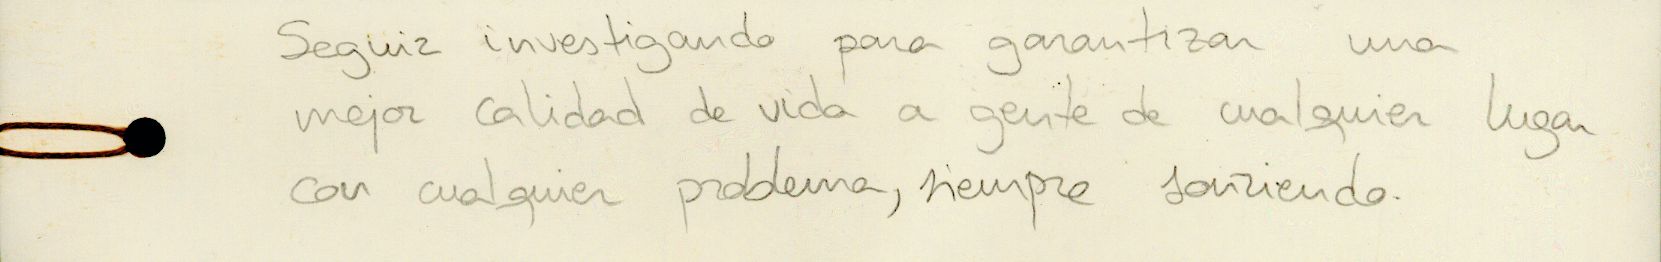 Seguir investigando para garantizar una
mejor calidad de vida a gente de cualquier lugar
con cualquier problema, siempre sonriendo.